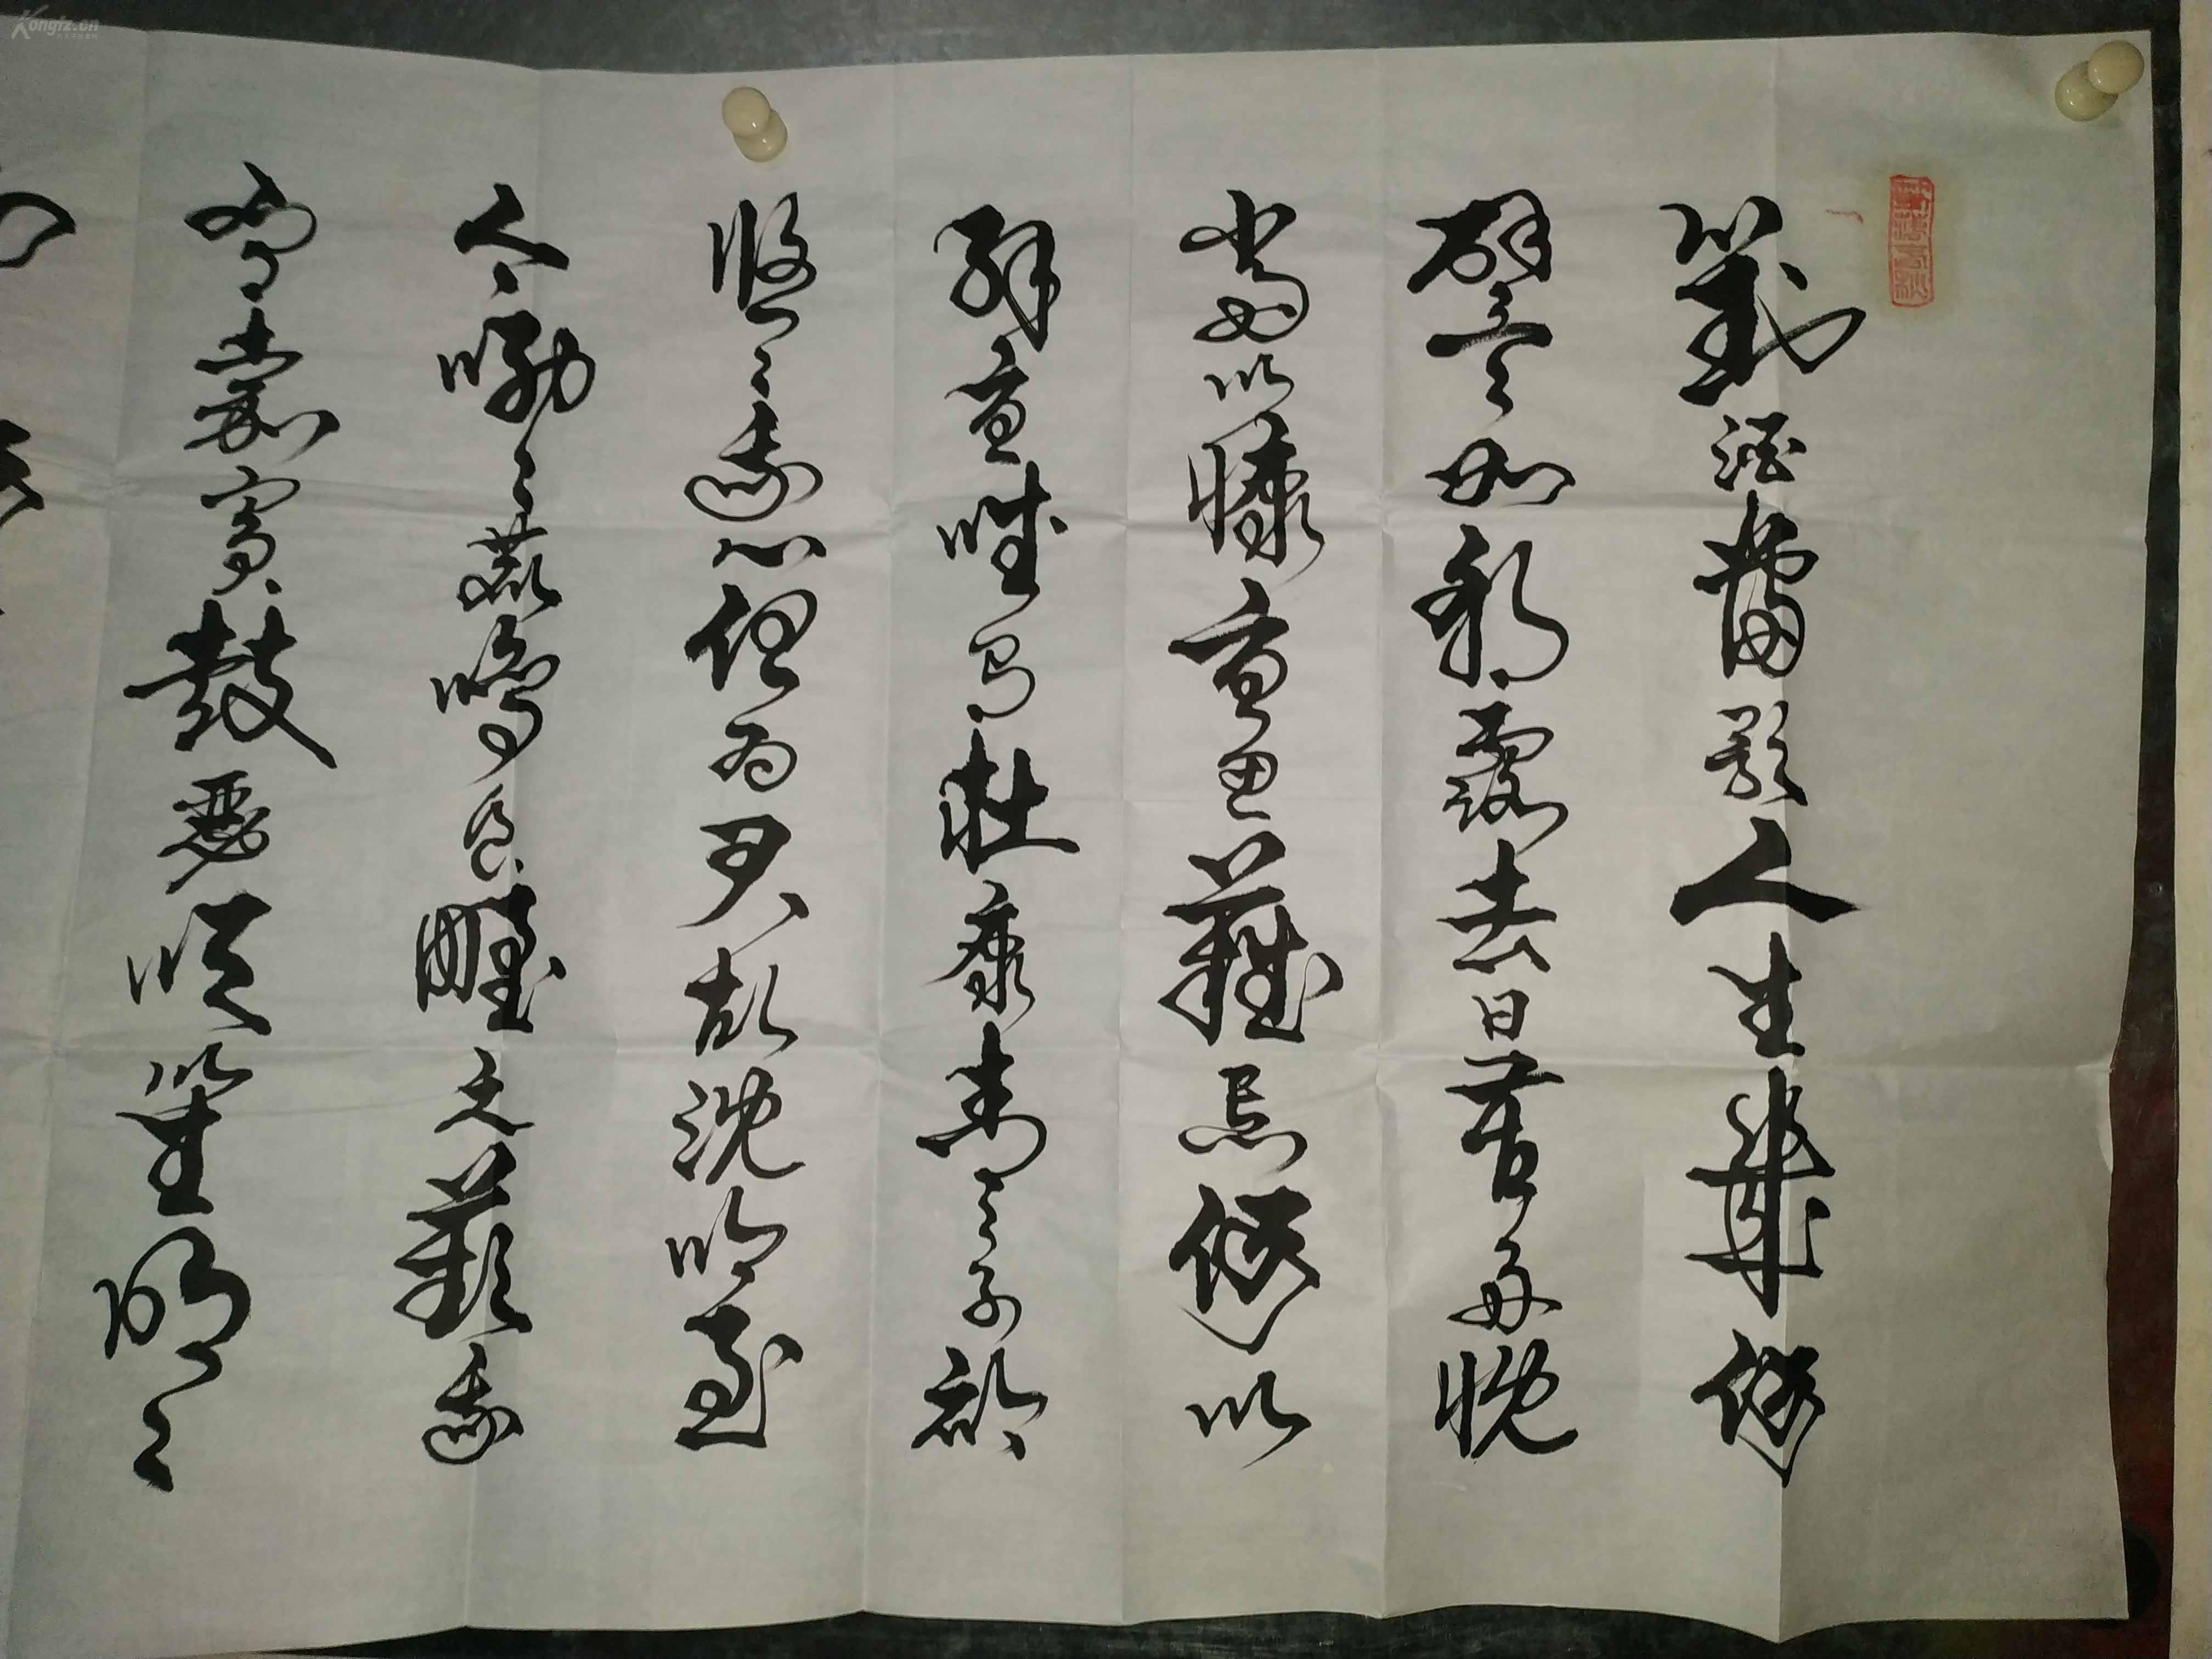 對酒當歌人生幾何
譬如朝露去日苦多慨
當以慷憂思難忘何以
解憂唯有杜康青々子衿
悠々我心但為君故沈吟至
今呦々鹿鳴食野之蘋我
有嘉賓鼓瑟吹笙明々
Kongfz.cn